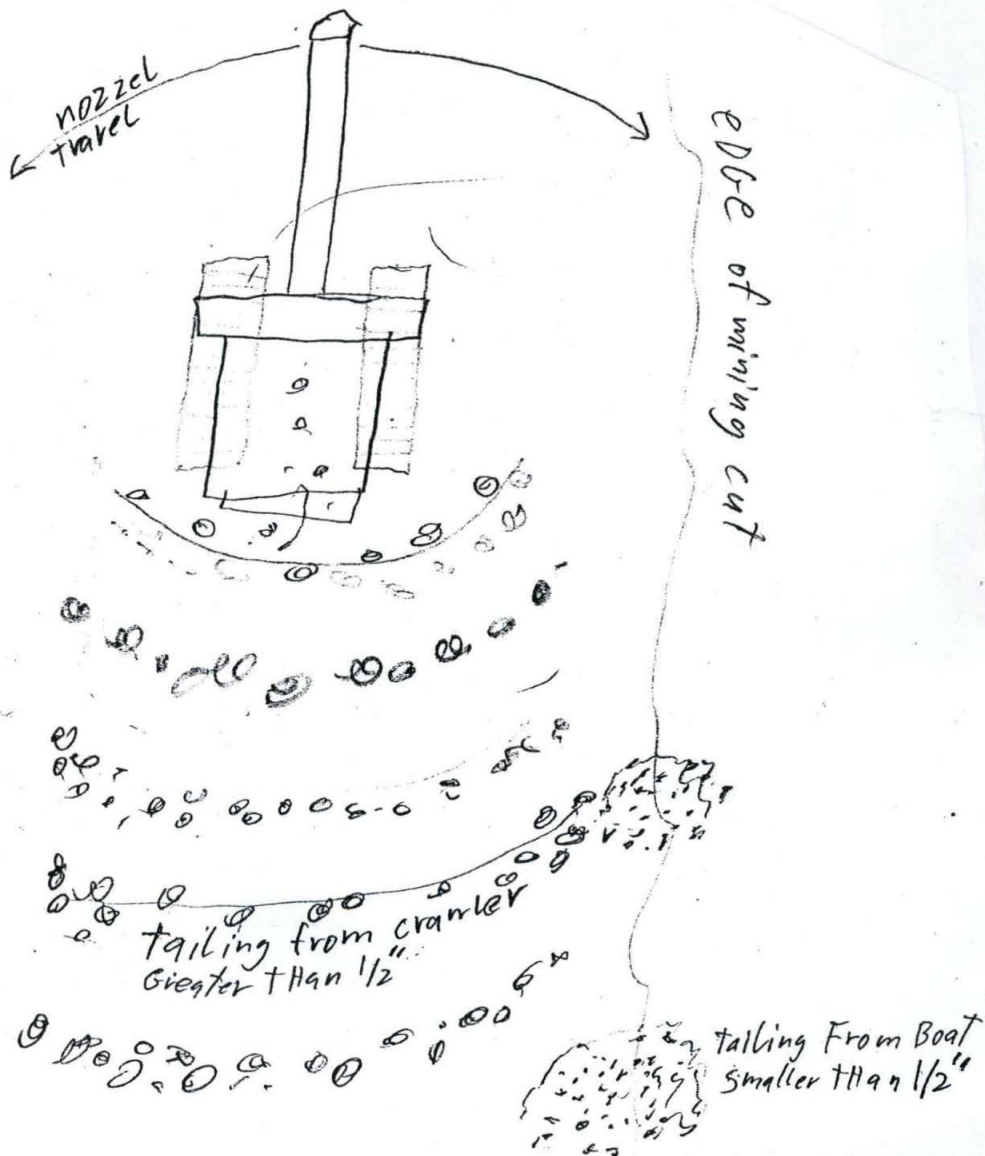 nozzel
travel
eDGe of mining cut
tailing from crawler
Greater tHan 1/2"
tailing From Boat
smaller tHan 1/2"